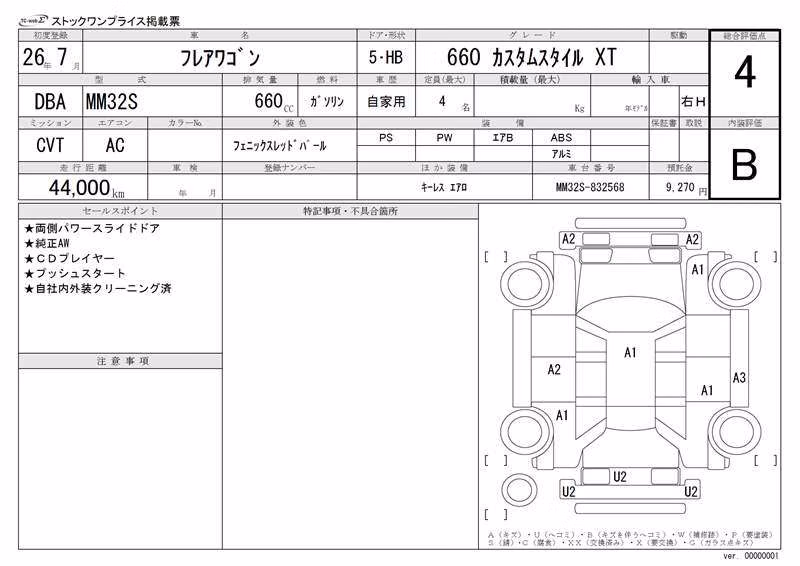 TC-webΣ ストックワンプライス掲載票
初度登録 車名 ドア・形状 グレード 駆動 総合評価点
26年 7月 フレアワゴン 5・HB 660 カスタムスタイル XT 4
型式 排気量 燃料 車歴 定員(最大) 積載量(最大) 輸入車
DBA MM32S 660CC ガソリン 自家用 4名 Kg 年モデル 右H
ミッション エアコン カラーNo. 外装色 装備 保証書 取説 内装評価
CVT AC フェニックスレッドパール PS PW エアB ABS B
アルミ
走行距離 車検 登録ナンバー ほか装備 車台番号 預託金
44,000km 年 月 キーレス エアロ MM32S-832568 9,270円
セールスポイント
★両側パワースライドドア
★純正AW
★CDプレイヤー
★プッシュスタート
★自社内外装クリーニング済
注意事項
特記事項・不具合箇所
A2 A2
[ ] [ ]
A1
A1
A2 A3
A1
A1
[ ] [ ]
U2
U2 U2
[ ]
A(キズ)・U(ヘコミ)・B(キズを伴うヘコミ)・W(補修跡)・P(要塗装)
S(錆)・C(腐食)・XX(交換済み)・X(要交換)・G(ガラス点キズ)
ver. 00000001